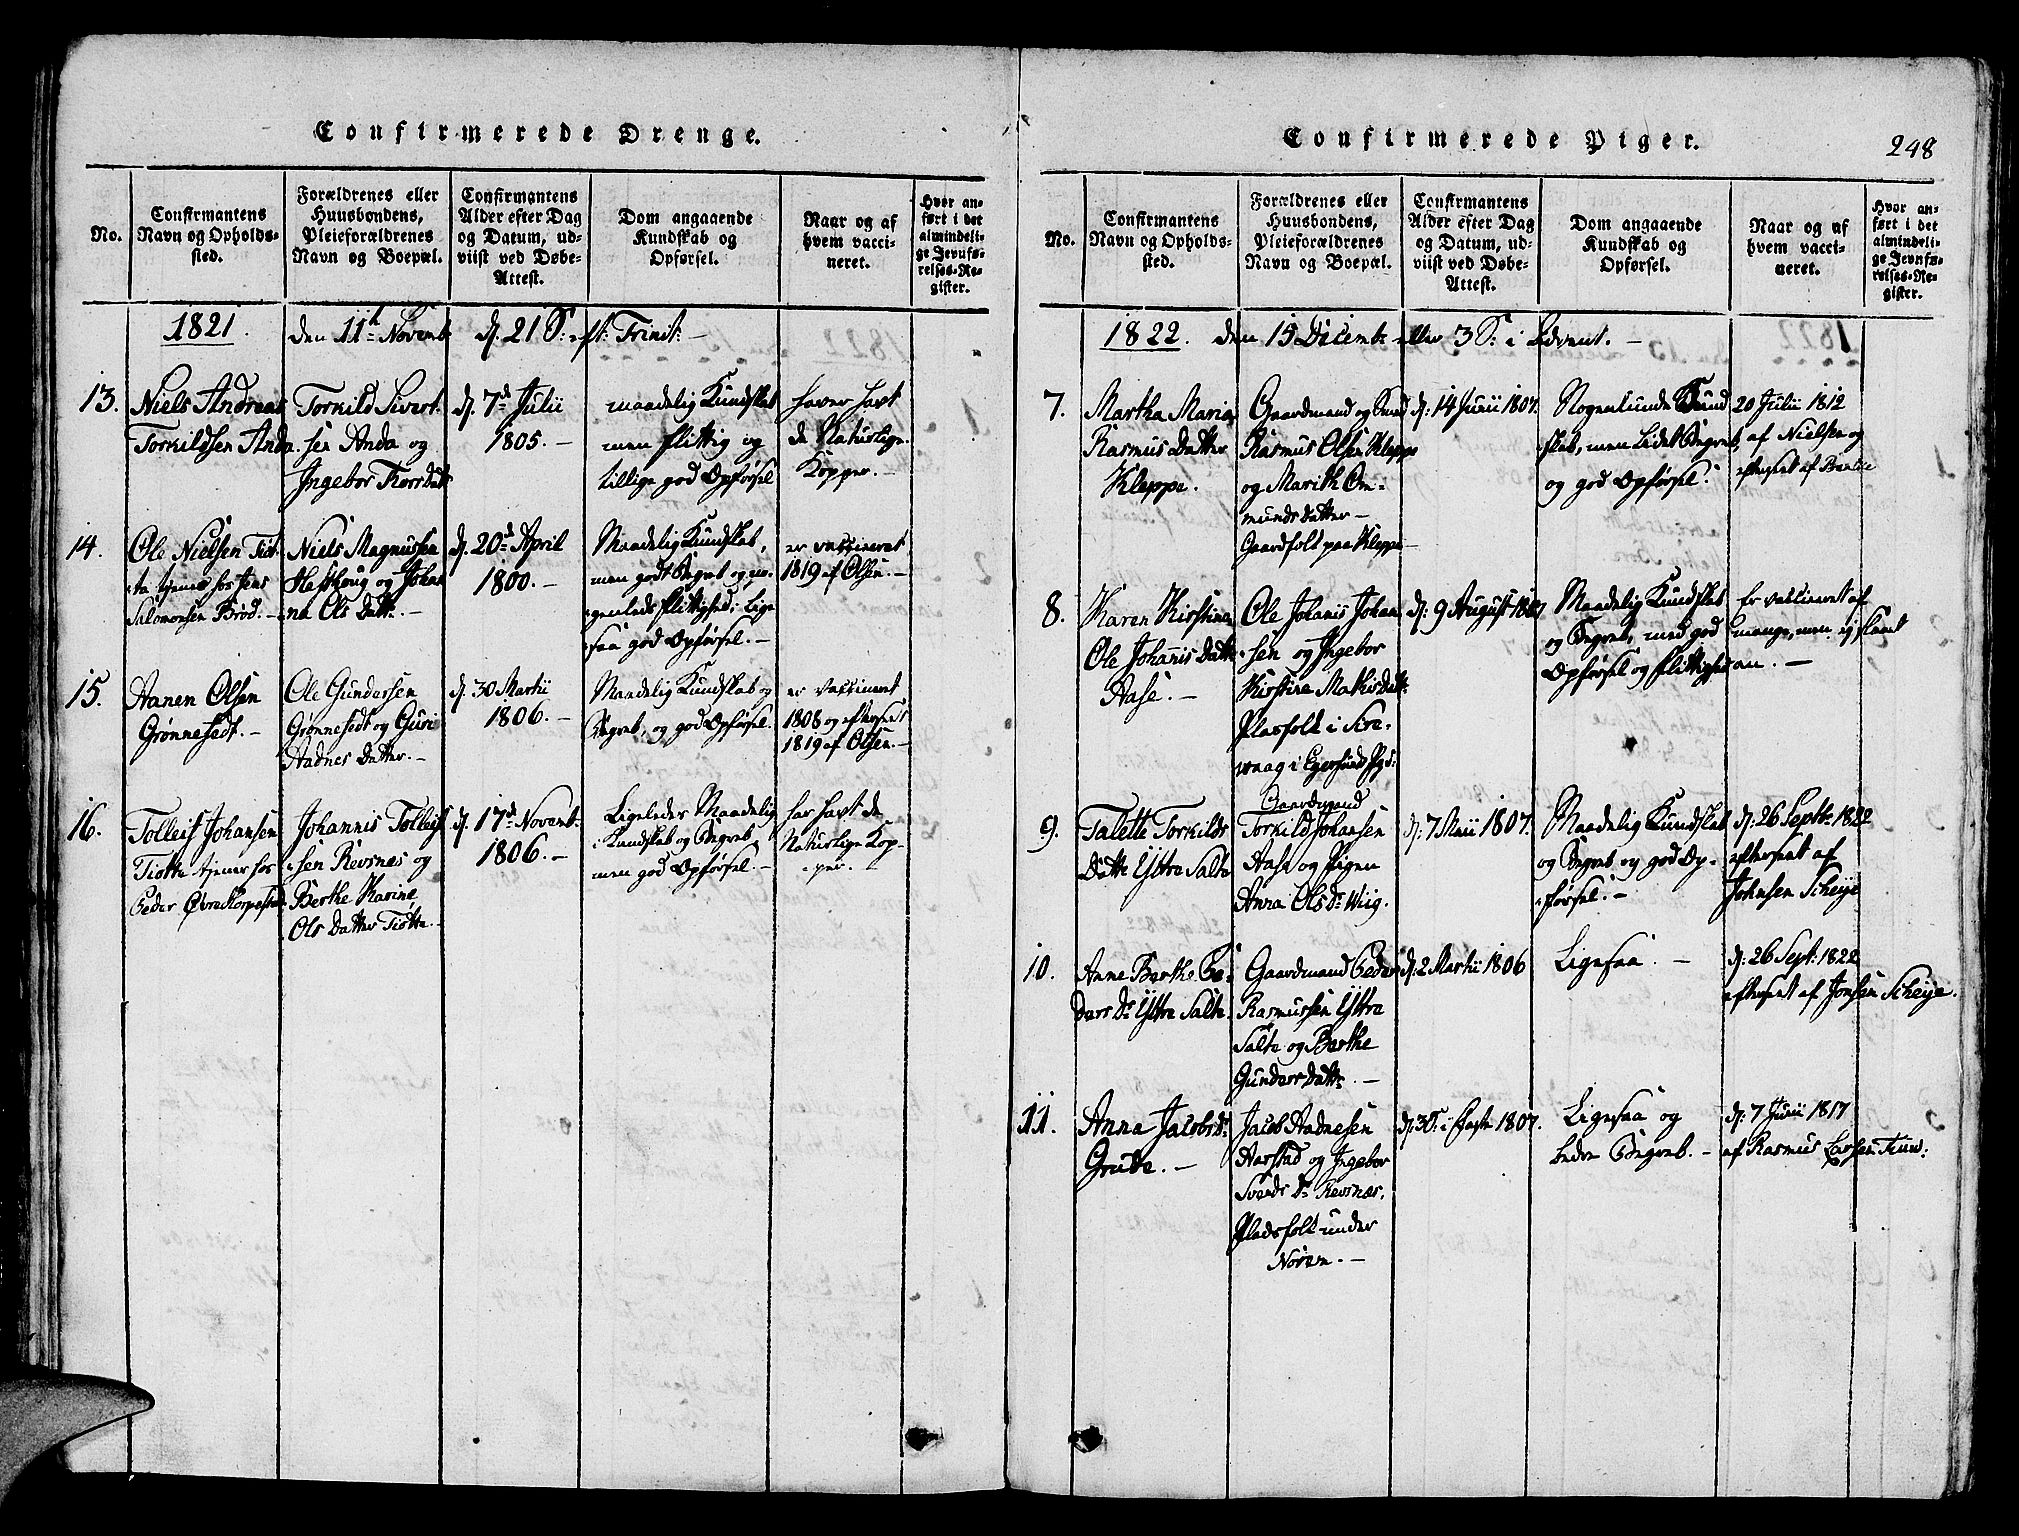 Confirmerede Drenge.
No.
Confirmantens
Navn og Opholds-
sted.
Forældrenes eller
Huusbondens,
Pleieforældrenes
Navn og Boepæl.
Confirmantens
Alder efter Dag
og Datum, ud-
viist ved Døbe-
Attest.
Dom angaaende
Kundskab og
Opførsel.
Naar og af
hvem vacci-
neret.
Hvor an-
ført i det
almindeli-
ge Jevnfø-
relses-Re-
gister.
1821. den 11te Novemb. d. 21 S: eft: Trinit: —
13.
Niels Andreas
Torkildsen Anda.
Torkild Sivert-
sen Anda og
Ingebor Thors Datt:
d. 7de Julii
1805. —
maadelig Kundskab
men flittig og
tillige god Opførsel
haver havt
de Naturlige
Kopper. —
14.
Ole Nielsen Tiøt-
ta tjener hos Jens
Salomonsen Brød. —
Niels Magnussen
og Johan
na Ols Datt: —
d. 20de April
1800. —
Maadelig Kundskab,
men godt Begreb og no-
genleds flittighed; Lige
saa god Opførsel. —
er vaccineret
1819 af Olsen. —
15.
Aanen Olsen
Grønnesedt. —
Ole Gundersen
Grønnesedt og Guri
Aadnes Datter. —
d. 30 Martii
1806. —
Maadelig Kundskab og
Begreb, og god Opførsel.
er vaccineret
1808 og efterseet
1819 af Olsen. —
16.
Tolleif Johansen
Tiøtta tjener hos
Peder Øvre
Johannis Tolleif-
sen Revsnes og
Berthe Karine
Ols Datter Tiøtta. —
d. 17de Novemb:
1806. —
Ligeledes Maadelig
Kundskab og Begreb
men god Opførsel. —
har havt de
Naturlige Kop-
per. —
Confirmerede Piger.
248
No.
Confirmantens
Navn og Opholds-
sted.
Forældrenes eller
Huusbondens,
Pleieforældrenes
Navn og Boepæl.
Confirmantens
Alder efter Dag
og Datum, ud-
viist ved Døbe-
Attest.
Dom angaaende
Kundskab og
Opførsel.
Naar og af
hvem vacci-
neret.
Hvor an-
ført i det
almindeli-
ge Jevnfø-
relses-Re-
gister.
1822. den 15 Decemb: eller 3 S: i Advent. —
7.
Martha Maria
Rasmus Datter
Kleppe.
Gaardmand og
Rasmus Olsen Kleppe
og Marith Om-
munds Datter —
Gaardfolk paa Kleppe —
d: 14 Junii 1807.
Nogenlunde Kund
skab, men Lidet Begreb,
og god Opførsel.
20 Julii 1812
af Nielsen og
efterseet af
8.
Karen Kirstine
Ole Johannis Datt:
Aase. —
Ole Johanis Johan
sen og Ingebor
Kirstine Mathis Datt:
Pladsfolk i Sire-
vaag i Egersund Pgd:
d: 9 August 1807
Maadelig Kundskab
og Begreb, med god
Opførsel og flittighed
Er vaccineret af
mange, men ej slaaet
an. —
9.
Talette Torkilds
Datter Yttre Salte
Gaardmand
Torkild Johansen
Aase og Pigen
Anna Ols Dr Wiig.
d: 7 Maii 1807.
Maadelig Kundskab
og Begreb og god Op-
førsel. —
d: 26 Septbr 1822
efterseet af
Johnsen Scheije
10.
Anne Berthe Pe-
ders Dr Yttre Salte.
Gaardmand Peder
Rasmussen Yttre
Salte og Berthe
Gunders Datt: —
d: 2 Martii 1806
Ligesaa. —
d: 26 Sept: 1822
efterseet af Jonsen Scheije.
11.
Anna Jacobs Dr
Grude. —
Jacob Aadnesen
Aarstad og Ingebor
Svends Dr Revsnæs,
Pladsfolk under
Nøren. —
d. 3 S: i Faste 1807.
Ligesaa og
bedre Begreb. —
d: 7 Junii 1817
af Rasmus Larsen